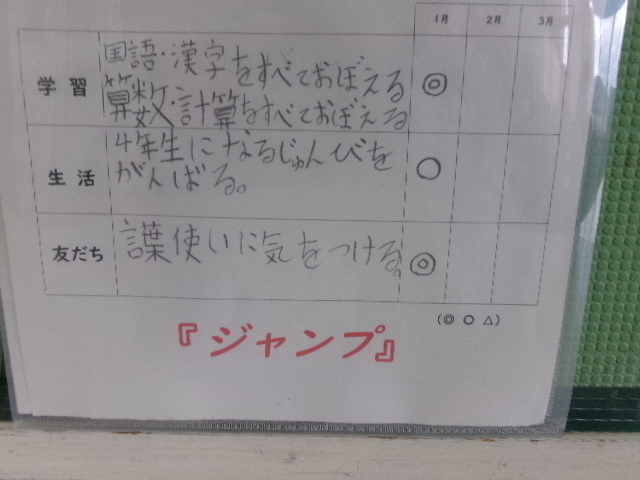 1月 2月 3月
学習 国語・漢字をすべておぼえる ◎
算数・計算をすべておぼえる
生活 4年生になるじゅんびを ○
がんばる。
友だち 言葉使いに気をつける。 ◎
(◎ ○ △)
『ジャンプ』